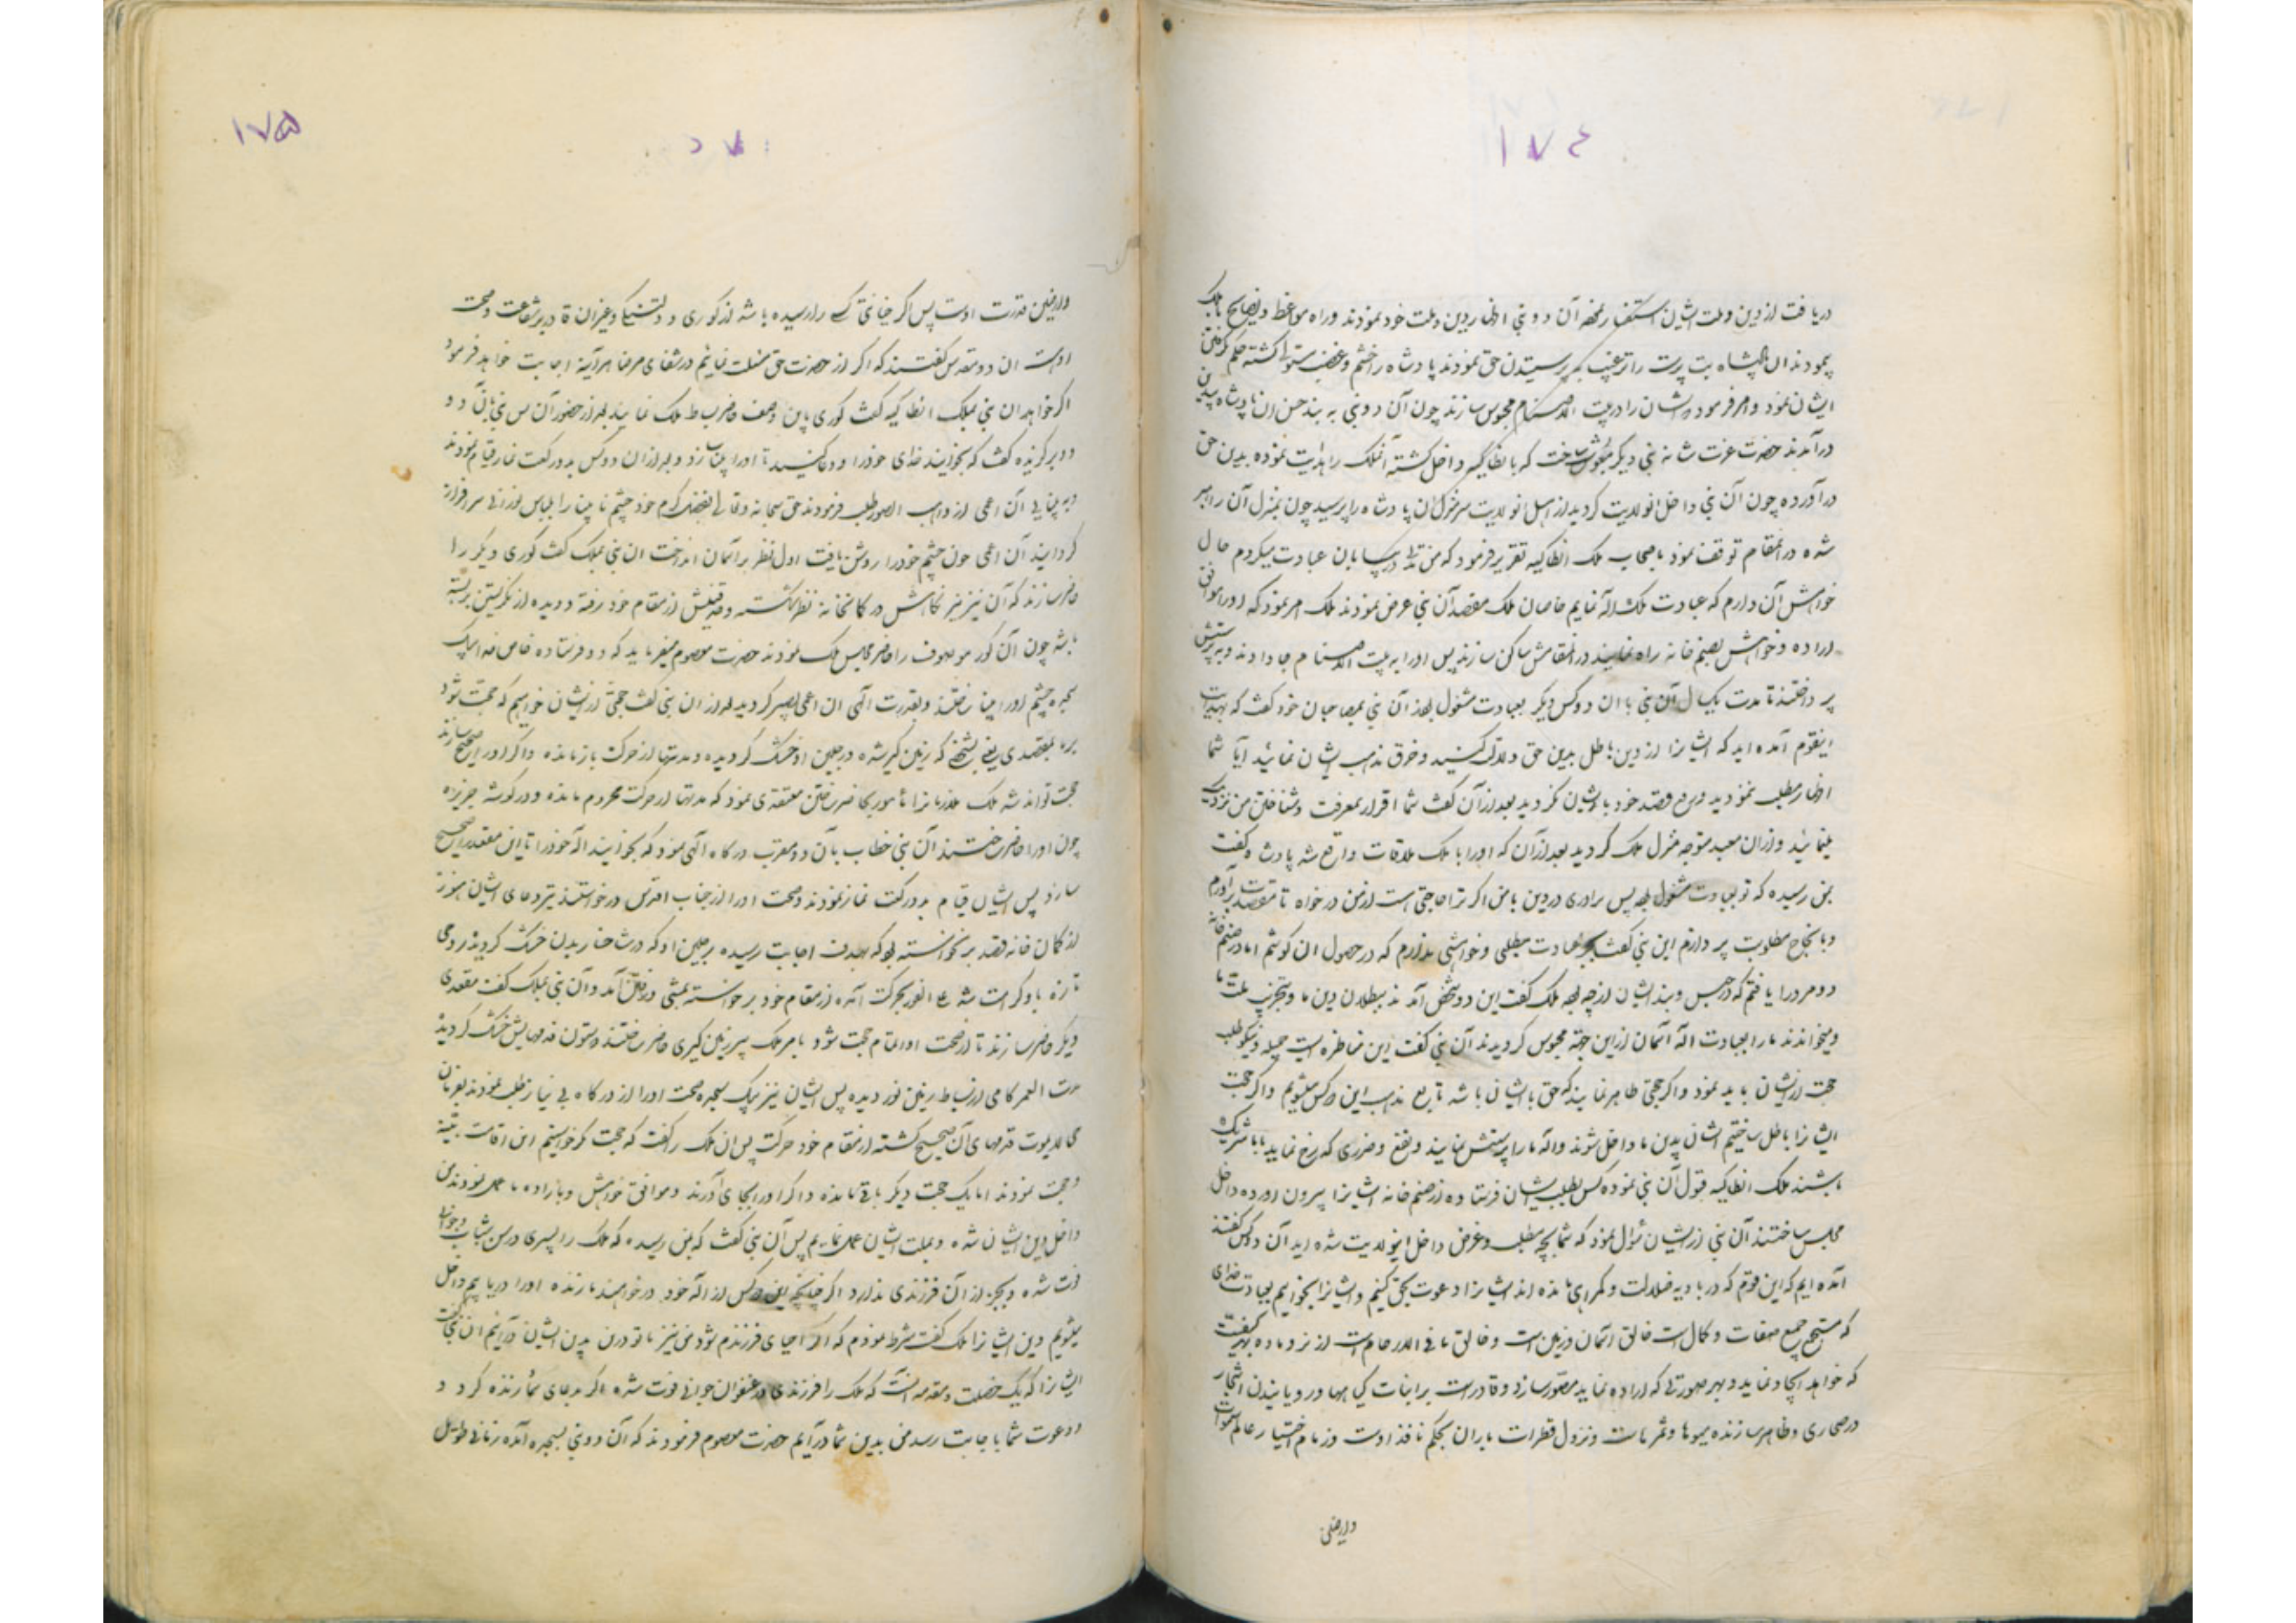 ۱۷٤
دریافت از دین و ملت ایشان استفسار نمود آن دو نبی اظهار دین و ملت خود نمودند و راه مواعظ و نصایح بملک
پیمودند آن پادشاه بت پرست را ترغیب به پرستیدن حق نمودند پادشاه را خشم و غضب مستولی گشته حکم بگرفتن
ایشان نمود و امر فرمود که ایشان را در بیت الاصنام محبوس سازند چون آن دو نبی به بند حسن آن پادشاه بیدین
در آمدند حضرت عزت شانه نبی دیگر مبعوث ساخت که بانطاکیه داخل گشته آنملک را هدایت نموده بدین حق
در آورده چون آن نبی داخل انولایت گردید از اهل انولایت سر منزل آن پادشاه را پرسید چون بمنزل آن رهبر
شده در انمقام توقف نمود باصحاب ملک انطاکیه تقریر فرمود که من در بیابان عبادت میکردم حال
خواهش آن دارم که عبادت ملک اله نمایم خاصان ملک مقصد آن نبی عرض نمودند ملک امر نمود که او را موافق
اراده و خواهش بصنم خانه راه نمایید در انمقامش ساکن سازند پس او را به بیت الاصنام جا دادند و به پرستش
پرداختند تا مدت یکسال آن نبی با آن دو کس دیگر بعبادت مشغول بود آن نبی بمصاحبان خود گفت که بهدایت
اینقوم آمده اید که ایشانرا از دین باطل بدین حق دلالت کنید و خرق مذهب ایشان نمائید آیا شما
اظهار مطلب نمودید و قصد خود با ایشان کردید بعد از آن گفت شما اقرار بمعرفت و شناختن من نزد ملک
ننمائید و از آن معبد متوجه منزل ملک گردید بعد از آن که او را با ملک ملاقات واقع شد پادشاه گفت
بمن رسیده که تو بعبادت مشغول بوده پس برادری در دین با من اگر ترا حاجتی است از من درخواه تا مقصدت برآورم
و بانجاح مطلوبت پردازم این نبی گفت بجز عبادت مطلبی و خواهشی ندارم که در حصول آن کوشم اما در صنم خانه
دو مرد را یافتم که در حبس و بند ایشان از چه بود ملک گفت این دو شخص آمدند ببطلان دین ما و تخریب ملت ما
و میخواندند ما را بعبادت اله آسمان از این جهة محبوس گردیدند آن نبی گفت این مناظره ایست جمیله و نیکو طلب
حجت از ایشان باید نمود و اگر حجتی ظاهر نمایند که حق با ایشان باشد تابع مذهب این دو کس میشویم و اگر حجت
ایشانرا باطل ساختیم ایشان بدین ما داخل شوند و اله ما را پرستش نمایند و نفع و ضرری که رخ نماید با ما شریک
باشند ملک انطاکیه قبول آن نبی نموده کس بطلب ایشان فرستاده از صنم خانه ایشانرا بیرون آورده داخل
مجلس ساختند آن نبی از ایشان سؤال نمود که شما بچه مطلب و غرض داخل اینولایت شده اید آن دو کس گفتند
آمده ایم که این قوم که در بادیه ضلالت و گمراهی مانده اند ایشانرا دعوت بحق کنیم و ایشانرا بخوانیم بعبادت خدای
که مستجمع جمیع صفات و کمال است خالق آسمان و زمین است و خالق ما فی الارحام است از نر و ماده بهر کیفیت
که خواهد ایجاد نماید و بهر صورتی که اراده نماید مصور سازد و قادر است بر انبات گیاهها و رویانیدن اشجار
در صحاری و ظاهر سازنده میوها و ثمرات و نزول قطرات باران بحکم نافذ اوست و زمام اختیار عالم سموات
وارضین
۱۷۵
وارضین قدرت اوست پس اگر خیانتی کسی را رسیده باشد از کوری و دلتنگی و غیر آن قادر بر شفاعت و صحت
اوست آن دو مقدس گفتند که اگر از حضرت حق مسئلت نمایم در شفای مرضا هر آینه اجابت خواهد فرمود
اگر خواهد آن نبی بملک انطاکیه گفت کوری باین وصف حاضر بساط ملک نمایند بعد از حضور آن کس نبی بآن دو
دو برگزیده گفت که بخوانید خدای خود را و دعا کنید تا او را بینا سازد و بعد از آن دو کس بدو رکعت نماز قیام نمودند
و بینایی آن اعمی از واهب الصور طلب فرمودند حق سبحانه و تعالی بفضل کرم خود چشم نابینا را بلباس نورانی سرافراز
گردانید آن اعمی چون چشم خود را روشن یافت اول نظر بر آسمان انداخت آن نبی بملک گفت کوری دیگر را
حاضر سازند که آن نیز تیر نگاهش در کمانخانه نظر شکسته و حدقتینش از مقام خود رفته و دیده از نگریستن بر بسته
باشد چون آن کور موصوف را حاضر مجلس ملک نمودند حضرت معصوم میفرماید که دو فرستاده خاص خدا بیک
سجده چشم او را بینا ساختند و بقدرت الهی آن اعمی بصیر گردید بعد از آن نبی گفت حجتی از ایشان خواهیم که حجت شود
بر ما بمقعدی یعنی شخصی که زمین گیر شده و رجلین او خشک گردیده و مدتها از حرکت باز مانده و اگر او را صحیح سازند
حجت تواند شد ملک ملازمانرا مأمور بحاضر ساختن مقعدی نمود که مدتها از حرکت محروم مانده و در گوشه خزیده
چون او را حاضر ساختند آن نبی خطاب بآن دو مقرب درگاه الهی نمود که بخوانید اله خود را تا این مقعد را صحیح
سازد پس ایشان قیام بدو رکعت نماز نمودند و صحت او را از جناب اقدس درخواستند تیر دعای ایشان هنوز
از کمان خانه قصد بر نخواسته بود که بهدف اجابت رسیده رجلین او که در شاخسار بدن خشک گردیده روحی
تازه باو کرامت شد علی الفور بحرکت آمده از مقام خود برخواسته بمشی و رفتن آمد و آن نبی بملک گفت مقعدی
دیگر حاضر سازند تا از صحت او اتمام حجت شود بامر ملک پیر زمین گیری حاضر ساختند و ستون قدمهایش خشک گردیده
مدت العمر گامی از بساط زمین نوردیده پس ایشان نیز بیک سجده صحت او را از درگاه بی نیاز طلب نمودند بفرمان
حی لایموت قدمهای آن صحیح گشته از مقام خود حرکت پس آن ملک را گفت که حجت که خواستیم این اقامت بینه
و حجت نمودند اما یک حجت دیگر باقی مانده و اگر او را بجای آورند و موافق خواهش و باراده ما عمل نمودند من
داخل دین ایشان شده و بملت ایشان عمل نمایم پس آن نبی گفت که بمن رسیده که ملک را پسری در سن شباب و جوانی
فوت شده و بجز از آن فرزندی ندارد اگر چنانچه این دو کس از اله خود درخواهند تا زنده او را دریابیم داخل
میشویم دین ایشانرا ملک گفت شرط نمودم که اگر احیای فرزندم شود من نیز با تو در دین ایشان درآیم آن نبی گفت
ایشانرا که یک خصلت و مقدمه است که ملک را فرزندی در عنفوان جوانی فوت شده اگر بدعای شما زنده گردد
و دعوت شما باجابت رسد من بدین شما درآیم حضرت معصوم فرمودند که آن دو نبی بسجده آمده زمانی طویل